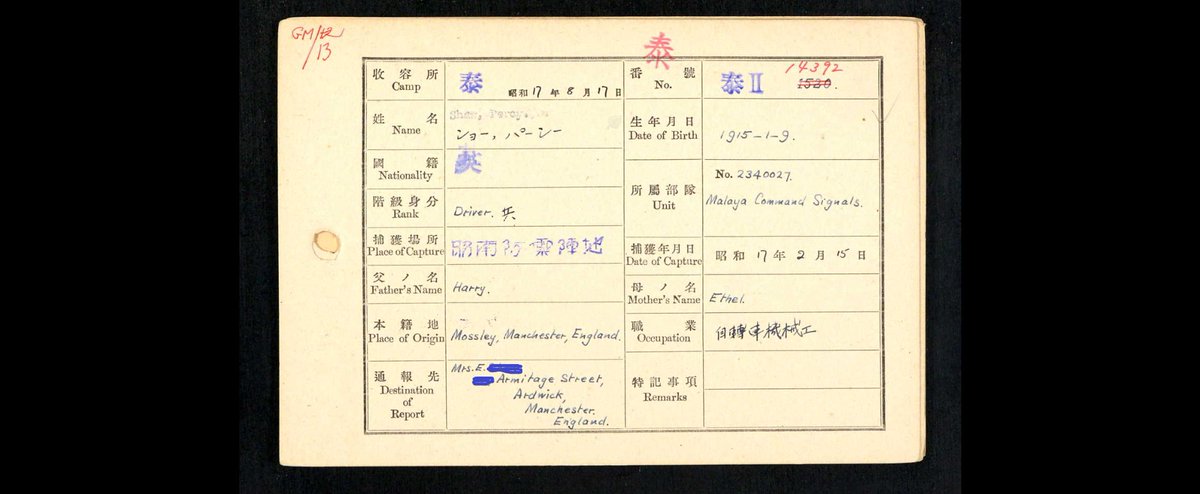 GM/
13
泰
收容所
Camp
泰
昭和17年8月17日
番號
No.
泰II
14392
1520.
姓名
Name
Shaw, Percy.
ショー，パーシー
生年月日
Date of Birth
1915-1-9.
國籍
Nationality
英
所屬部隊
Unit
No. 2340027.
Malaya Command Signals.
階級身分
Rank
Driver. 兵
捕獲場所
Place of Capture
昭南
陣地
捕獲年月日
Date of Capture
昭和17年2月15日
父ノ名
Father's Name
Harry.
母ノ名
Mother's Name
Ethel.
本籍地
Place of Origin
Mossley, Manchester, England.
職業
Occupation
自轉車機械工
通報先
Destination
of
Report
Mrs. E.
Armitage Street,
Ardwick,
Manchester.
England.
特記事項
Remarks